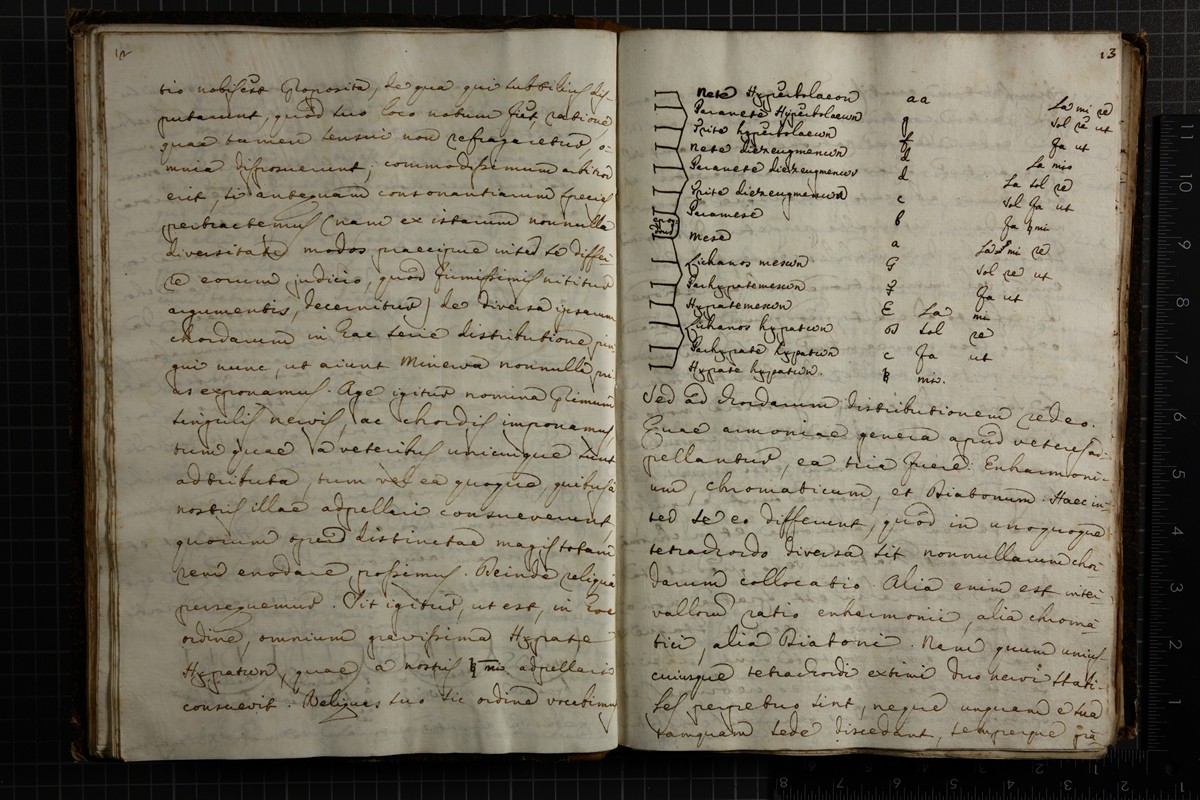 12
tio nobis est proposita, de qua qui subtilius dis-
putarunt, quod suo loco notum fiet, ratione
quae tamen sensui non refragaretur, o-
mnia disposuerunt; commodissimum arbitror
erit, si antequam consonantiarum species
pertractemus (nam ex istarum nonnulla
diversitate modos praecipue inter se differ
re eorum judicio, quod firmissimis nititur
argumentis, decernitur) de diversa ipsarum
chordarum in hac serie distributione
qui nunc, ut aiunt Minerva nonnulla
as exponamus. Age igitur nomina primum
singulis nervis, ac chordis imponamus
tum quae a veteribus unicuique sunt
adtributa, tum vero ea quoque, quibus
nostri illae adpellari consueverunt,
quorum ope distinctae magis totam
rem enodare possimus. Deinde reliqua
persequemur. Sit igitur, ut est, in hoc
ordine, omnium gravissima Hypate
Hypatωn, quae a nostris ♮ mi adpellari
consuevit. Reliquas suo sic ordine
13
Nete Hyperbolaeon aa La mi re
Paranete Hyperbolaeωn g Sol re ut
Trite hyperbolaeωn f fa ut
Nete diezeugmenωn La mi
Paranete diezeugmenωn d La sol re
Trite diezeugmenωn c Sol fa ut
Paramese fa ♮ mi
Mese a La mi re
Lichanos mesωn G Sol re ut
Parhypatemesωn F fa ut
Hypatemesωn E La mi
Lichanos hypatωn Sol re
Parhypate hypatωn c fa ut
Hypate hypatωn. ♮ mi.
Sed ad chordarum distributionem redeo.
Quae armoniae genera apud veteres ad-
pellantur, ea tria fuere: Enharmoni-
um, chromaticum, et Diatonum. Haec in-
ter se eo different, quod in unoquoque
tetrachordo diversa sit nonnullarum chor-
darum collocatio. Alia enim est inter-
vallorum ratio enharmonii, alia chroma-
tici, alia Diatoni. Nam quum unius
cuiusque tetrachordi extimi duo nervi stati-
les perpetuo sint, neque unquam e sua
tamquam sede discedant, semperque